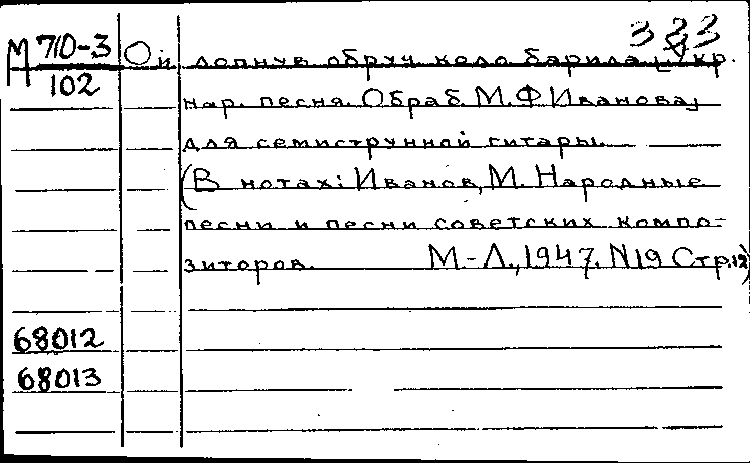 323
М 710-3
102
Ой лопнув обруч коло барила, Укр.
нар. песня. Обраб. М.Ф Иванова,
для семиструнной гитары.
(В нотах: Иванов, М. Народные
песни и песни советских компо-
зиторов. М.-Л., 1947. N19 Стр.12)
68012
68013